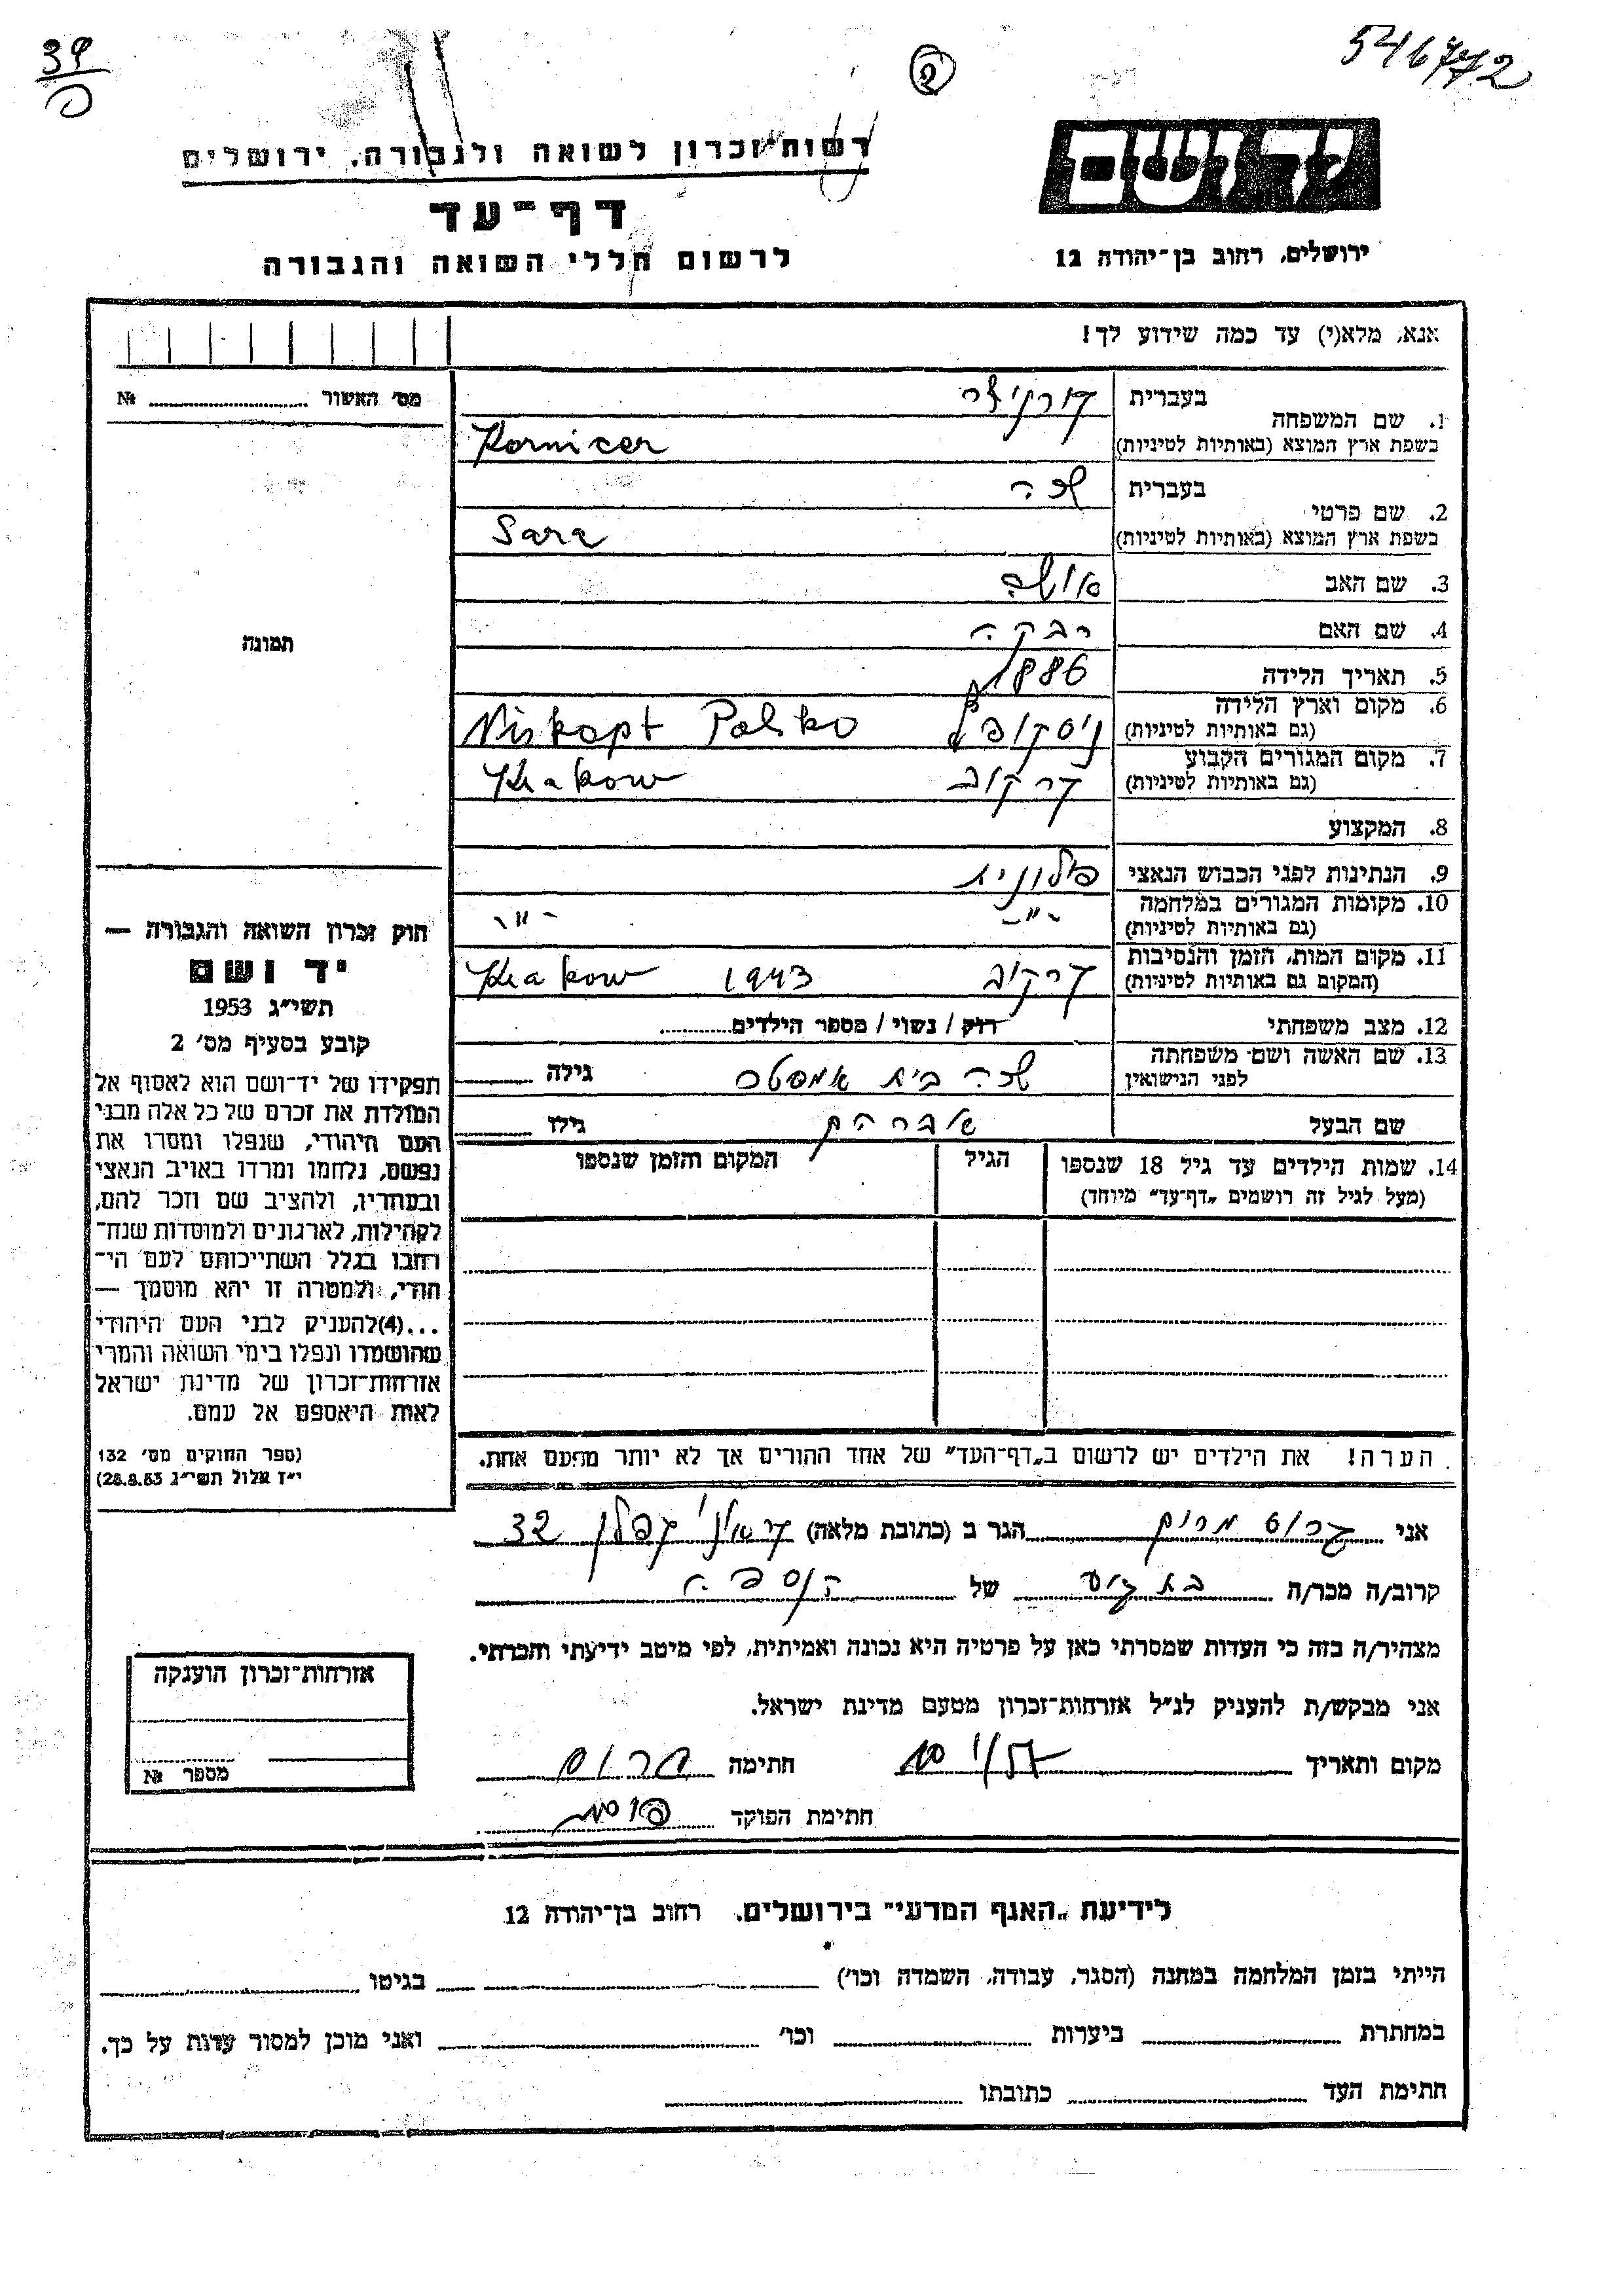 39
5
2
546772
יד ושם
רשות זכרון לשואה ולגבורה, ירושלים
דף־עד
לרשום חללי השואה והגבורה
ירושלים, רחוב בן־יהודה 12
אנא, מלא(י) עד כמה שידוע לך!
מס׳ האשור № 
תמונה
1. שם המשפחה
בעברית קורניצר
בשפת ארץ המוצא (באותיות לטיניות) Kornicer
2. שם פרטי
בעברית שרה
בשפת ארץ המוצא (באותיות לטיניות) Sara
3. שם האב
4. שם האם רבקה
5. תאריך הלידה 1886
6. מקום וארץ הלידה
(גם באותיות לטיניות) Niskopt Polsko
7. מקום המגורים הקבוע
(גם באותיות לטיניות) קרקוב Krakow
8. המקצוע
9. הנתינות לפני הכבוש הנאצי פולונית
10. מקומות המגורים במלחמה
(גם באותיות לטיניות) -"- -"-
11. מקום המות, הזמן והנסיבות
(המקום גם באותיות לטיניות) קרקוב 1943 Krakow
12. מצב משפחתי רוק / נשוי / מספר הילדים
13. שם האשה ושם משפחתה
לפני הנישואין שרה בית גילה
שם הבעל אברהם גילו
14. שמות הילדים עד גיל 18 שנספו
(מעל לגיל זה רושמים „דף־עד״ מיוחד)
הגיל
המקום והזמן שנספו
חוק זכרון השואה והגבורה —
יד ושם
תשי״ג 1953
קובע בסעיף מס׳ 2
תפקידו של יד־ושם הוא לאסוף אל
המולדת את זכרם של כל אלה מבני
העם היהודי, שנפלו ומסרו את
נפשם, נלחמו ומרדו באויב הנאצי
ובעוזריו, ולהציב שם וזכר להם,
לקהילות, לארגונים ולמוסדות שנח־
רבו בגלל השתייכותם לעם הי־
הודי, ולמטרה זו יהא מוסמך —
...(4)להעניק לבני העם היהודי
שהושמדו ונפלו בימי השואה והמרי
אזרחות־זכרון של מדינת ישראל
לאות היאספם אל עמם.
(ספר החוקים מס׳ 132
י״ז אלול תשי״ג 28.8.53)
הערה! את הילדים יש לרשום ב„דף־העד״ של אחד ההורים אך לא יותר מפעם אחת.
אני מרים הגר ב (כתובת מלאה) קפלן 32
קרוב/ה מכר/ה של הנספה
מצהיר/ה בזה כי העדות שמסרתי כאן על פרטיה היא נכונה ואמיתית, לפי מיטב ידיעתי והכרתי.
אני מבקש/ת להעניק לנ״ל אזרחות־זכרון מטעם מדינת ישראל.
מקום ותאריך חתימה
חתימת הפוקד
אזרחות־זכרון הוענקה
מספר №
לידיעת „האגף המדעי״ בירושלים. רחוב בן־יהודה 12
הייתי בזמן המלחמה במחנה (הסגר, עבודה, השמדה וכו׳) בגיטו
במחתרת ביערות וכו׳ ואני מוכן למסור עדות על כך.
חתימת העד כתובתו